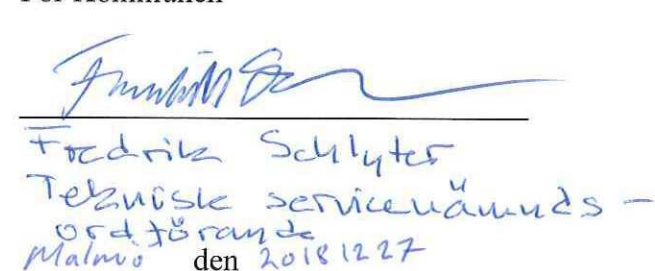 För Kommunen
Fredrik Schlyter
Teknisk servicenämnds-
ordförande
Malmö den 20181227